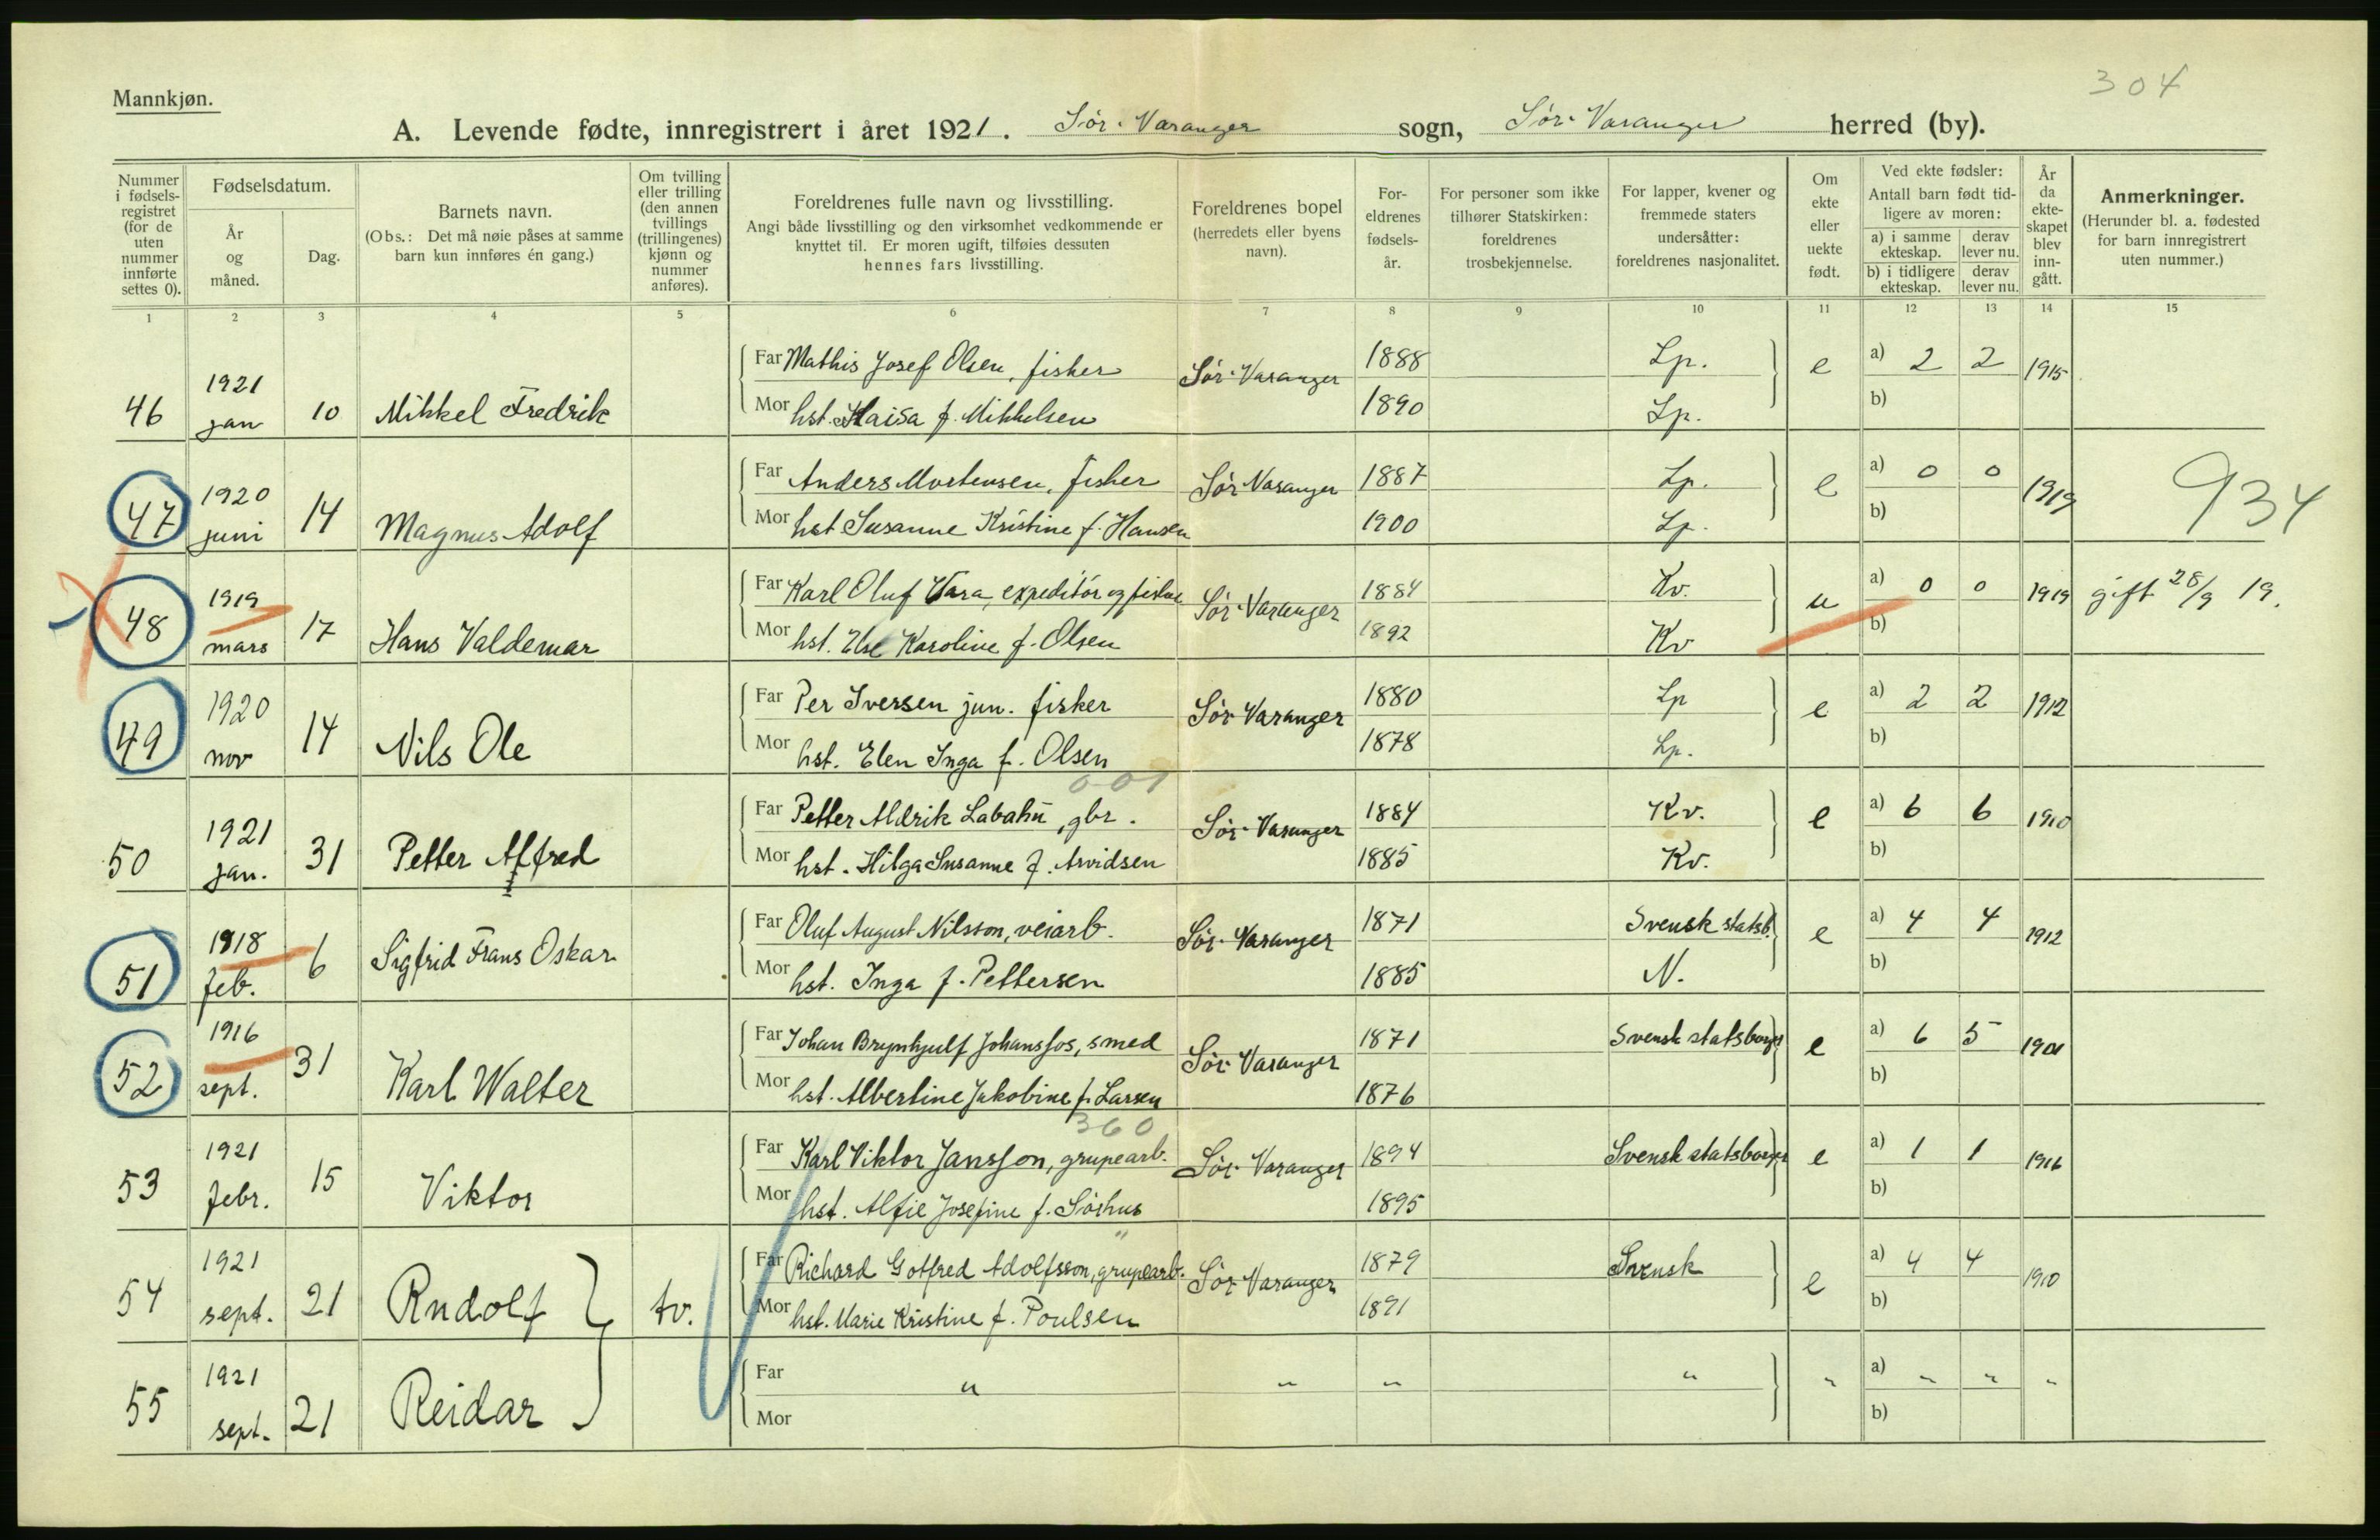 304
Mannkjøn.
A. Levende fødte, innregistrert i året 1921. Sør-Varanger sogn, Sør-Varanger herred (by).
Nummer i fødselsregistret (for de uten nummer innførte settes 0).
Fødselsdatum.
År og måned.
Dag.
Barnets navn.
(Obs.: Det må nøie påses at samme barn kun innføres én gang.)
Om tvilling eller trilling (den annen tvillings (trillingenes) kjønn og nummer anføres).
Foreldrenes fulle navn og livsstilling.
Angi både livsstilling og den virksomhet vedkommende er knyttet til. Er moren ugift, tilføies dessuten hennes fars livsstilling.
Foreldrenes bopel (herredets eller byens navn).
Foreldrenes fødselsår.
For personer som ikke tilhører Statskirken: foreldrenes trosbekjennelse.
For lapper, kvener og fremmede staters undersåtter: foreldrenes nasjonalitet.
Om ekte eller uekte født.
Ved ekte fødsler:
Antall barn født tidligere av moren:
a) i samme ekteskap. derav lever nu.
b) i tidligere ekteskap. derav lever nu.
År da ekteskapet blev inngått.
Anmerkninger.
(Herunder bl. a. fødested for barn innregistrert uten nummer.)
1 2 3 4 5 6 7 8 9 10 11 12 13 14 15
46 1921 jan 10 Mikkel Fredrik
Far Mathis Josef Olsen, fisker Sør-Varanger 1888 Lp. e a) 2 2 1915
Mor hst. Kaisa f. Mikkelsen 1890 Lp. b)
47 1920 juni 14 Magnus Adolf
Far Anders Mortensen, fisker Sør-Varanger 1887 Lp. e a) 0 0 1919 934
Mor hst Susanne Kristine f. Hansen 1900 Lp. b)
48 1919 mars 17 Hans Valdemar
Far Karl Oluf Vara, expeditør og fisker Sør-Varanger 1884 Kv. u a) 0 0 1919 gift 28/9 19.
Mor hst. Else Karoline f. Olsen 1892 Kv b)
49 1920 nov 14 Nils Ole
Far Per Iversen jun. fisker Sør-Varanger 1880 Lp e a) 2 2 1912
Mor hst. Elen Inga f. Olsen 1878 Lp. b)
0-01
50 1921 jan. 31 Petter Alfred
Far Petter Aldrik Labahü, gbr. Sør-Varanger 1884 Kv. e a) 6 6 1910
Mor hst. Hilga Susanne f. Arvidsen 1885 Kv. b)
51 1918 feb. 6 Sigfrid Frans Oskar
Far Oluf August Nilsson, veiarb. Sør-Varanger 1871 Svensk statsb. e a) 4 4 1912
Mor hst. Inga f. Pettersen 1885 N. b)
52 1916 sept. 31 Karl Walter
Far Johan Brynhjulf Johansfos, smed Sør-Varanger 1871 Svensk statsborger e a) 6 5 1901
Mor hst. Albertine Jakobine f. Larsen 1876 b)
360
53 1921 febr. 15 Viktor
Far Karl Viktor Jansson, grupearb. Sør-Varanger 1894 Svensk statsborger e a) 1 1 1916
Mor hst. Alfie Josefine f. Sørhus 1895 b)
54 1921 sept. 21 Rudolf tv.
Far Richard Gotfred Adolfsson, grupearb. Sør-Varanger 1879 Svensk e a) 4 4 1910
Mor hst. Marie Kristine f. Poulsen 1891 b)
55 1921 sept. 21 Reidar
Far " " " " " a) " " "
Mor b)